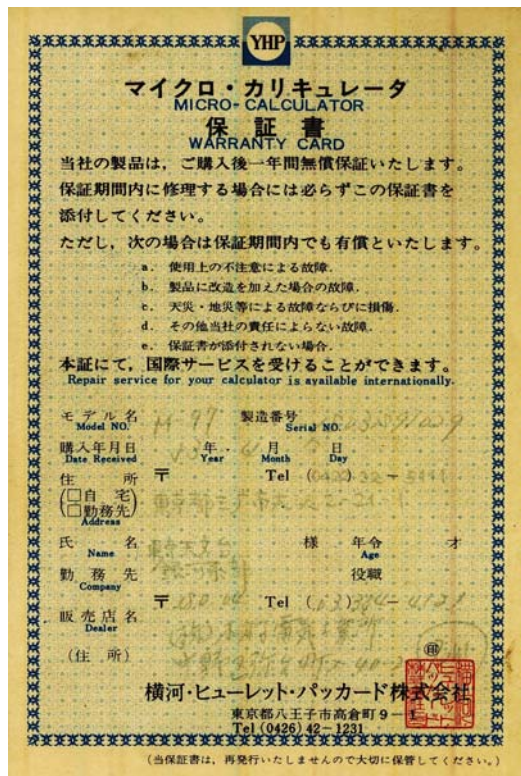 YHP
マイクロ・カリキュレータ
MICRO-CALCULATOR
保証書
WARRANTY CARD
当社の製品は，ご購入後一年間無償保証いたします。
保証期間内に修理する場合には必らずこの保証書を
添付してください。
ただし，次の場合は保証期間内でも有償といたします。
a. 使用上の不注意による故障.
b. 製品に改造を加えた場合の故障.
c. 天災・地災等による故障ならびに損傷.
d. その他当社の責任によらない故障.
e. 保証書が添付されない場合.
本証にて，国際サービスを受けることができます。
Repair service for your calculator is available internationally.
モデル名 97 製造番号
Model NO. Serial NO.
購入年月日 年 月 日
Date Received Year Month Day
住所 〒 Tel (0422)32-5111
(□自宅
□勤務先) 東京都三鷹市大沢2-21-1
Address
氏名 東京天文台 様 年令 才
Name Age
勤務先 役職
Company
〒 Tel (03)
販売店名
Dealer
(住所)
印
横河・ヒューレット・パッカード株式会社
東京都八王子市高倉町9-1
Tel (0426) 42-1231
(当保証書は，再発行いたしませんので大切に保管してください。)